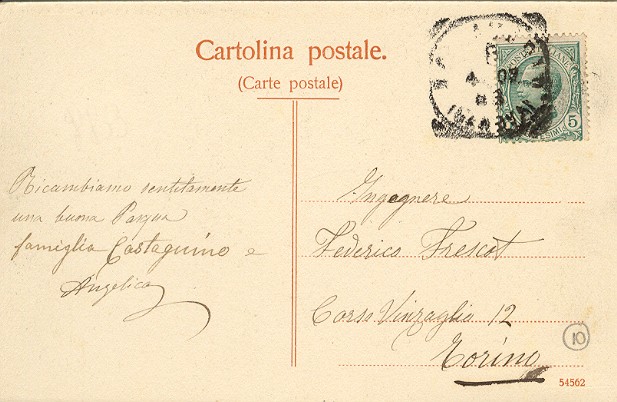 Cartolina postale.
(Carte postale)
Ricambiamo sentitamente
una buona Pasqua
famiglia Costaguino e
Angelica
Ingegnere
Federico Frescot
Corso Vinzaglio 12
Torino
5
10
54562